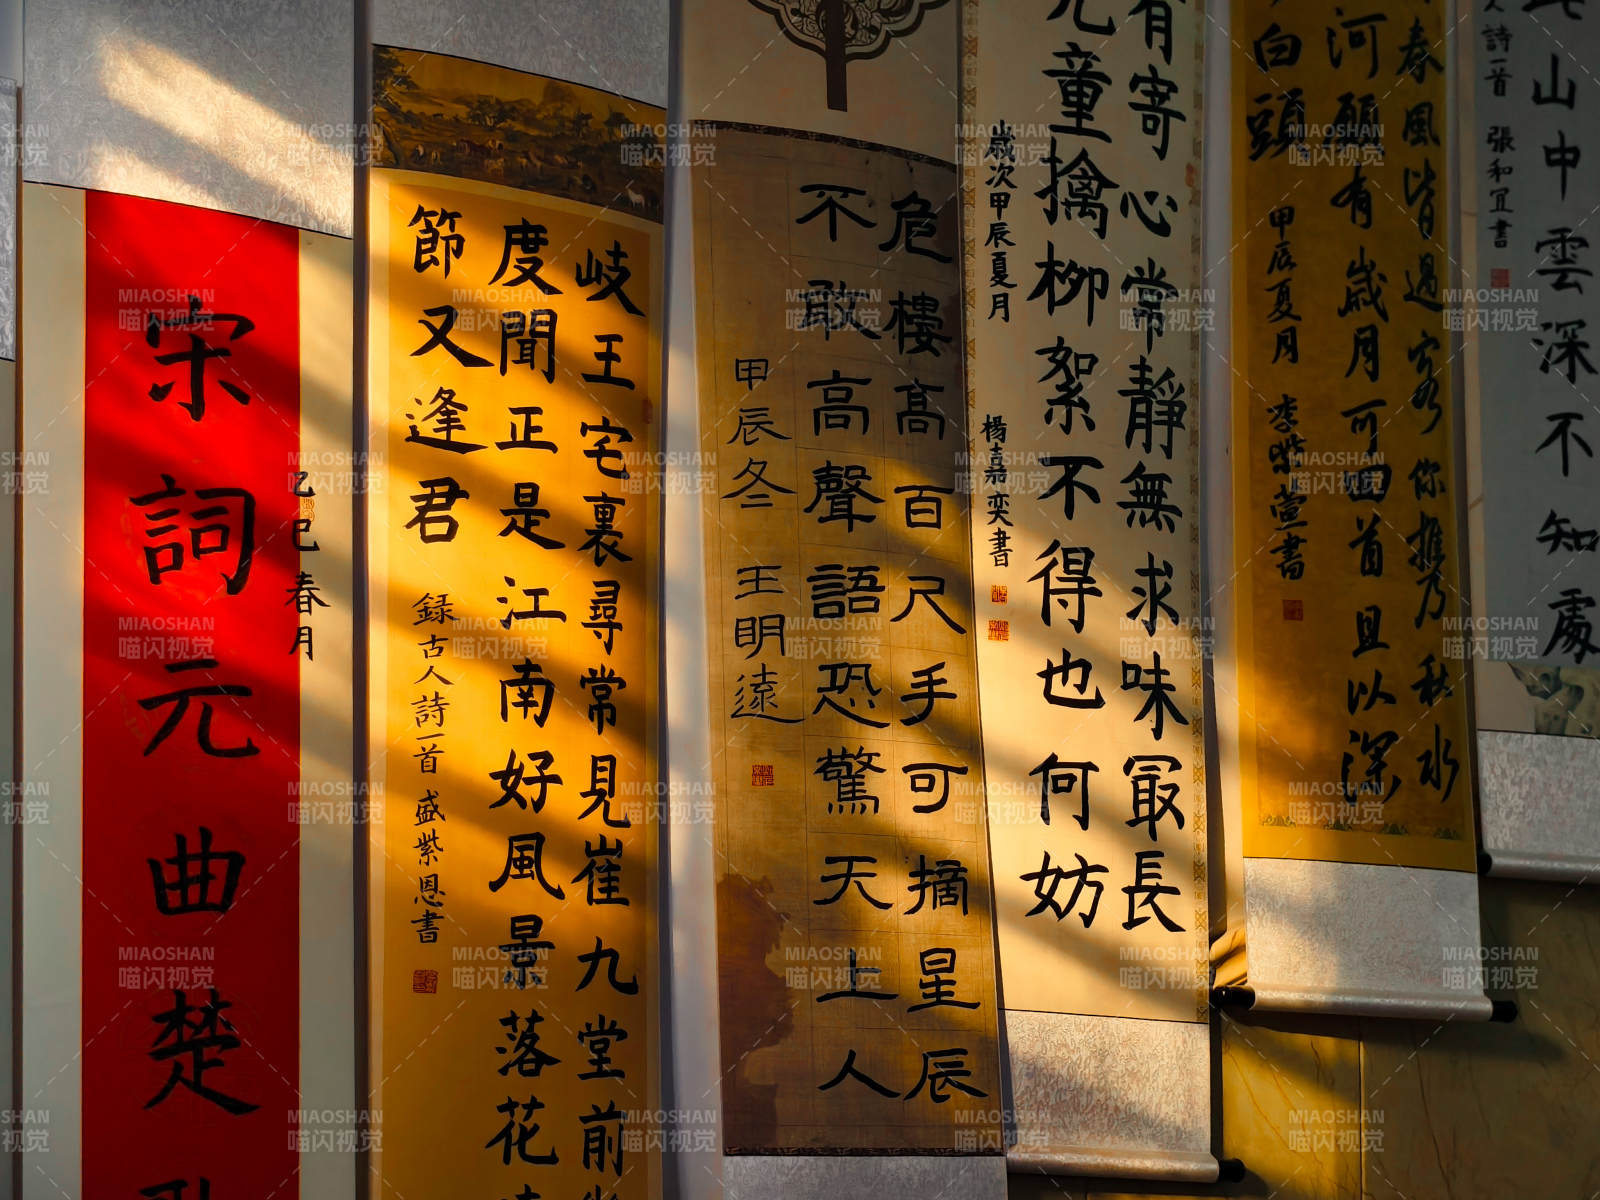 山中雲深不知處
詩一首 張和宜書
春風皆過客你攜乃秋水
河願有歲月可回首且以深
白頭 甲辰夏月 李紫萱書
有寄心常靜無求味冣長
童擒柳絮不得也何妨
歲次甲辰夏月 楊嘉奕書
危樓髙百尺手可摘星辰
不敢高聲語恐驚天上人
甲辰冬 王明遠
岐王宅裏尋常見崔九堂前
度聞正是江南好風景落花
節又逢君 録古人詩一首 盛紫恩書
乙巳春月
宋詞元曲楚
MIAOSHAN
喵闪视觉